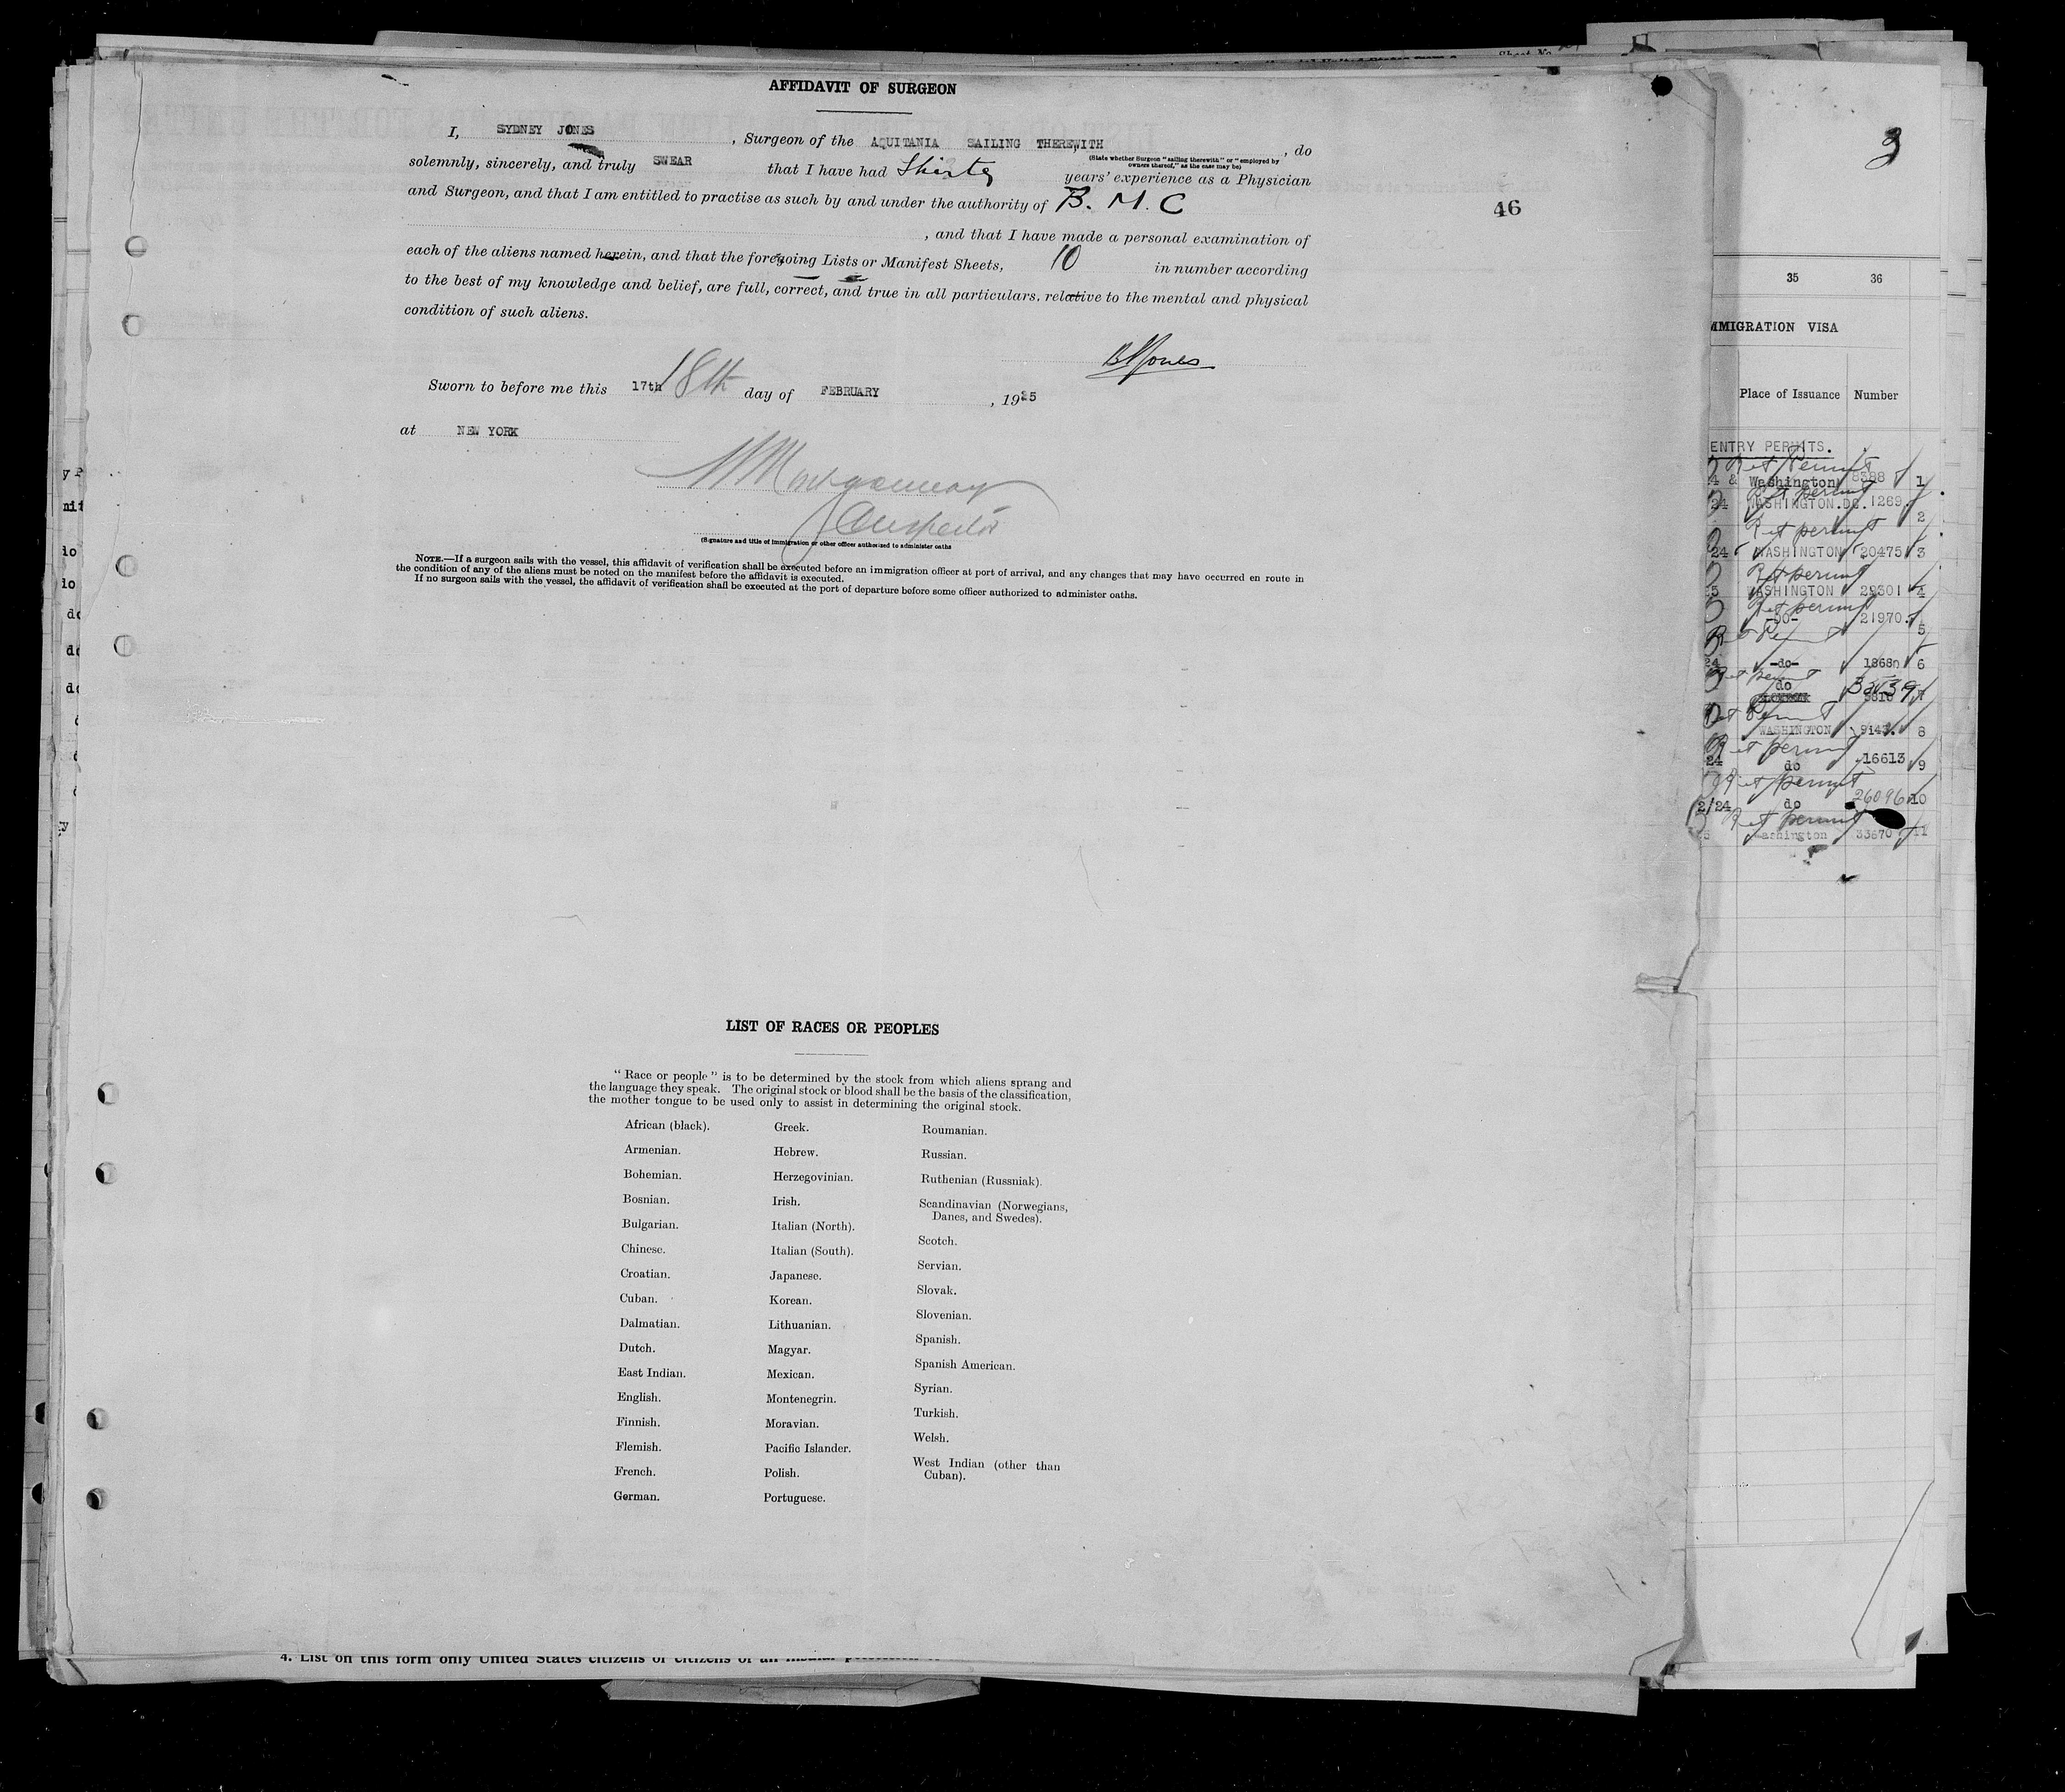 AFFIDAVIT OF SURGEON
I, SYDNEY JONES, Surgeon of the AQUITANIA SAILING THEREWITH, do
(State whether Surgeon "sailing therewith" or "employed by owners thereof," as the case may be)
solemnly, sincerely, and truly SWEAR that I have had Thirty years' experience as a Physician
and Surgeon, and that I am entitled to practise as such by and under the authority of B. M. C
, and that I have made a personal examination of
each of the aliens named herein, and that the foregoing Lists or Manifest Sheets, 10 in number according
to the best of my knowledge and belief, are full, correct, and true in all particulars, relative to the mental and physical
condition of such aliens.
Jones
Sworn to before me this 17th 18th day of FEBRUARY, 1925
at NEW YORK
Montgomery
Inspector
(Signature and title of immigration or other officer authorized to administer oaths
NOTE.—If a surgeon sails with the vessel, this affidavit of verification shall be executed before an immigration officer at port of arrival, and any changes that may have occurred en route in
the condition of any of the aliens must be noted on the manifest before the affidavit is executed.
If no surgeon sails with the vessel, the affidavit of verification shall be executed at the port of departure before some officer authorized to administer oaths.
LIST OF RACES OR PEOPLES
"Race or people" is to be determined by the stock from which aliens sprang and
the language they speak. The original stock or blood shall be the basis of the classification,
the mother tongue to be used only to assist in determining the original stock.
African (black).
Armenian.
Bohemian.
Bosnian.
Bulgarian.
Chinese.
Croatian.
Cuban.
Dalmatian.
Dutch.
East Indian.
English.
Finnish.
Flemish.
French.
German.
Greek.
Hebrew.
Herzegovinian.
Irish.
Italian (North).
Italian (South).
Japanese.
Korean.
Lithuanian.
Magyar.
Mexican.
Montenegrin.
Moravian.
Pacific Islander.
Polish.
Portuguese.
Roumanian.
Russian.
Ruthenian (Russniak).
Scandinavian (Norwegians,
Danes, and Swedes).
Scotch.
Servian.
Slovak.
Slovenian.
Spanish.
Spanish American.
Syrian.
Turkish.
Welsh.
West Indian (other than
Cuban).
4. List on this form only United States citizens or citizens of an insular
3
46
35 36
IMMIGRATION VISA
Place of Issuance Number
ENTRY PERMITS.
Ret Permit
Washington 1
Ret permit
24 WASHINGTON.DC. 1269 2
Ret permit
24 WASHINGTON 20475 3
Ret permit
25 WASHINGTON 29301 4
Ret permit
-DO- 21970 5
Ret Permit
24 -do- 18680 6
Ret permit
do 7
Ret Permit
WASHINGTON 8
Ret permit
24 do 16613 9
Ret permit
2/24 do 26096 10
Ret permit
Washington 33670 11